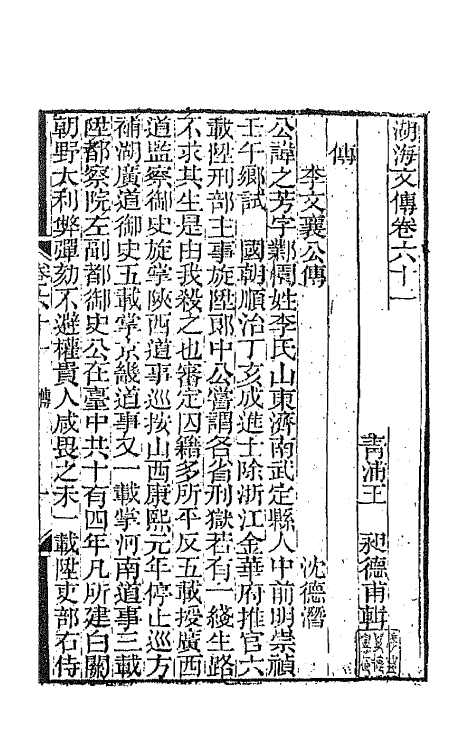 湖海文傳卷六十一
青浦王　昶德甫輯
傳
李文襄公傳　沈德潛
公諱之芳字鄴園姓李氏山東濟南武定縣人中前明崇禎
壬午鄉試　國朝順治丁亥成進士除浙江金華府推官六
載陞刑部主事旋陞郎中公嘗謂各省刑獄若有一綫生路
不求其生是由我殺之也審定囚籍多所平反五載授廣西
道監察御史旋掌陝西道事巡按山西康熙元年停止巡方
補湖廣道御史五載掌京畿道事又一載掌河南道事三載
陞都察院左副都御史公在臺中共十有四年凡所建白關
朝野大利弊彈劾不避權貴人咸畏之未一載陞吏部右侍
卷六十一　傳　一